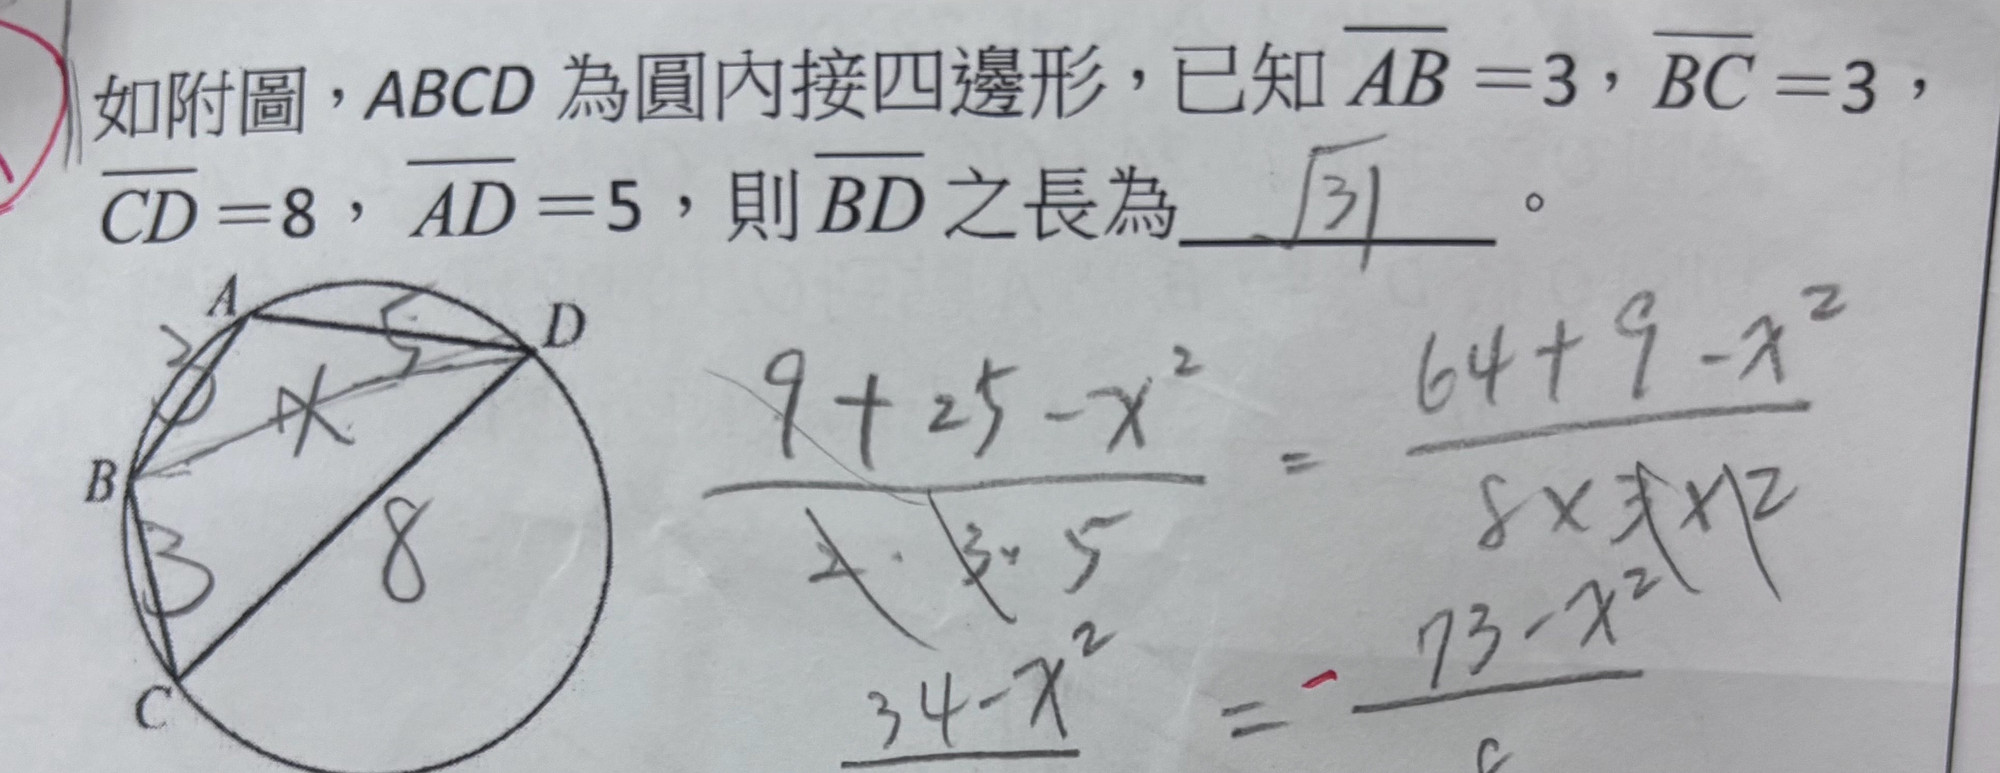 如附圖，ABCD 為圓內接四邊形，已知 AB=3，BC=3，
CD=8， AD=5，則 BD 之長為 √31 。
A 5 D
3
x
B
3
8
C
9+25-x² = 64+9-x²
2·3·5 8×3×2
34-x² = - 73-x²